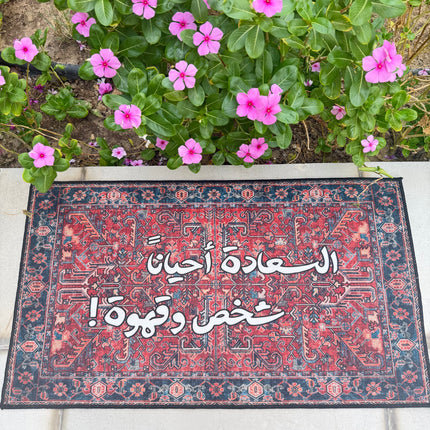 السعادة أحياناً
شخص وقهوة !